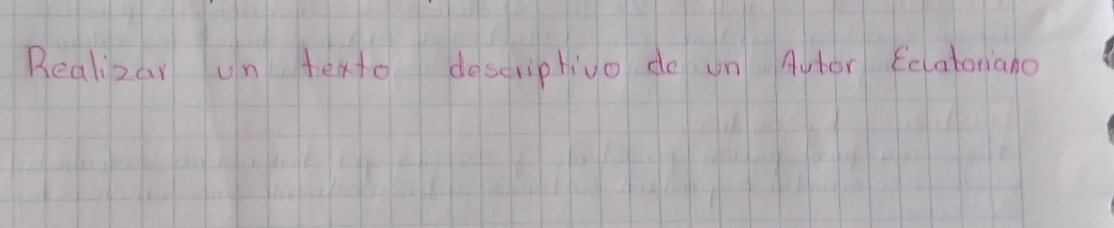 Realizar un texto descriptivo de un Autor Ecuatoriano